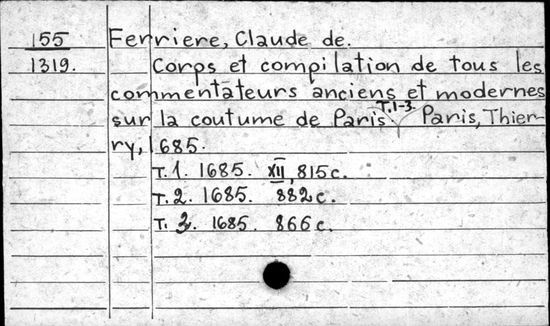 155 Ferriere, Claude de.
1319. Corps et compilation de tous les
commentateurs anciens et modernes
sur la coutume de Paris T.1-3. Paris, Thier-
ry, 1685.
T. 1. 1685. XII, 815 c.
T. 2. 1685. 882 c.
T. 3. 1685. 866 c.